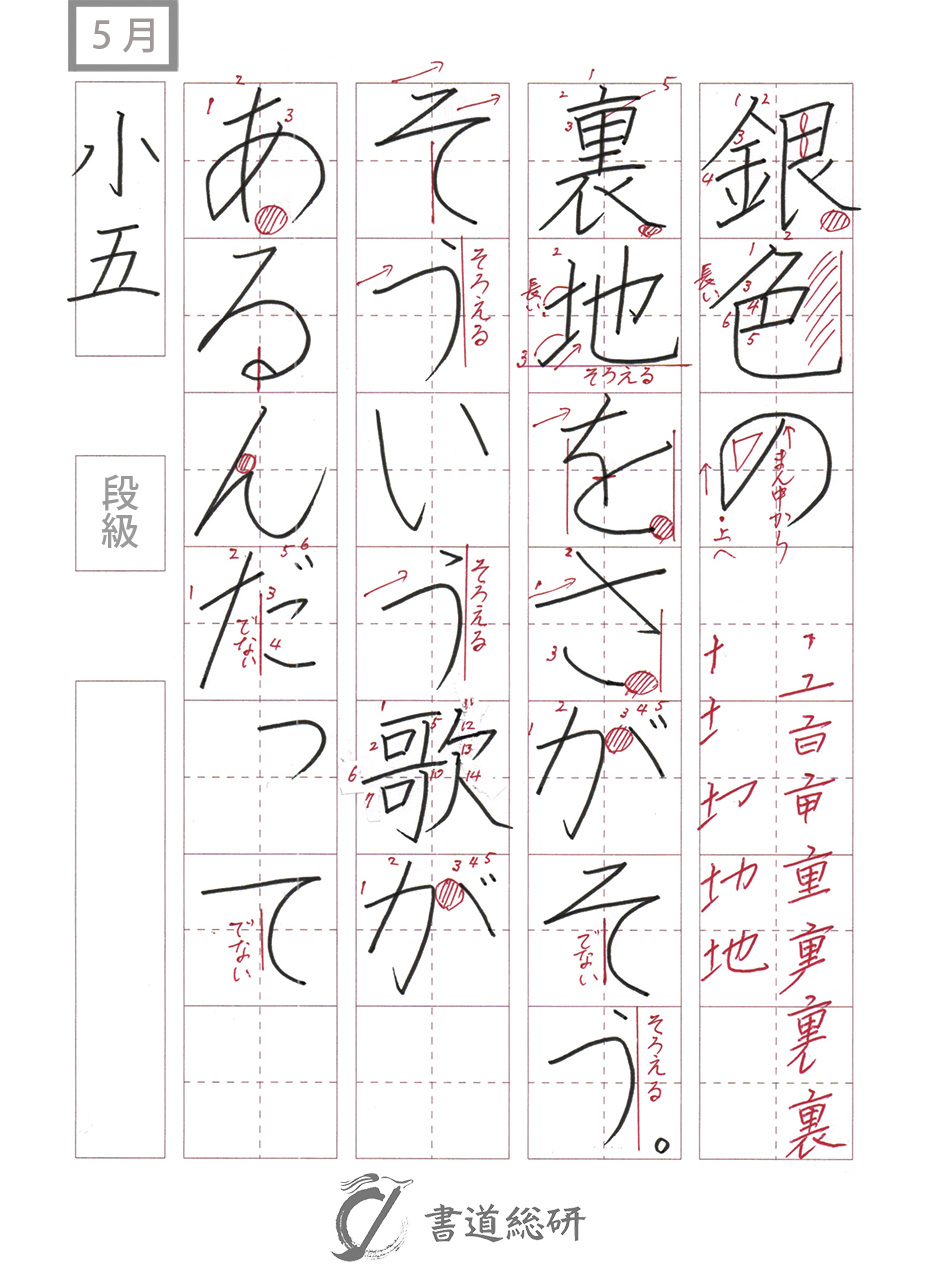 5月
銀色の
裏地をさがそう。
そういう歌が
あるんだって
小五
段級
長い
まん中から
上へ
長い
そろえる
でない
そろえる
そろえる
そろえる
でない
でない
書道総研